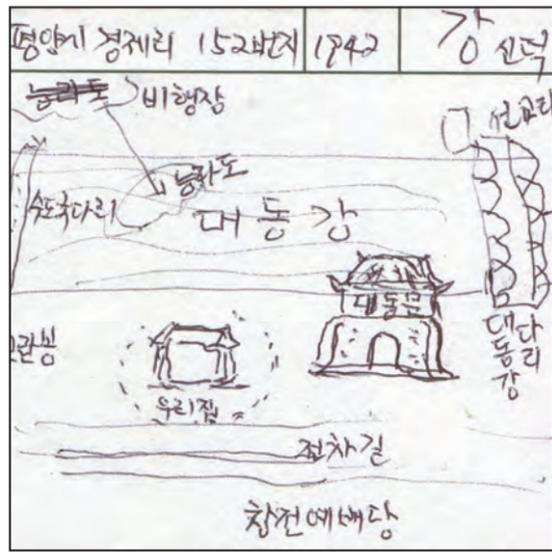 평양시 경제리 152번지 1942 강 신덕
능라도 비행장 선교리
능라도
수도국다리 대동강
대동문
모란봉 대동강 다리
우리집
전차길
창전예배당